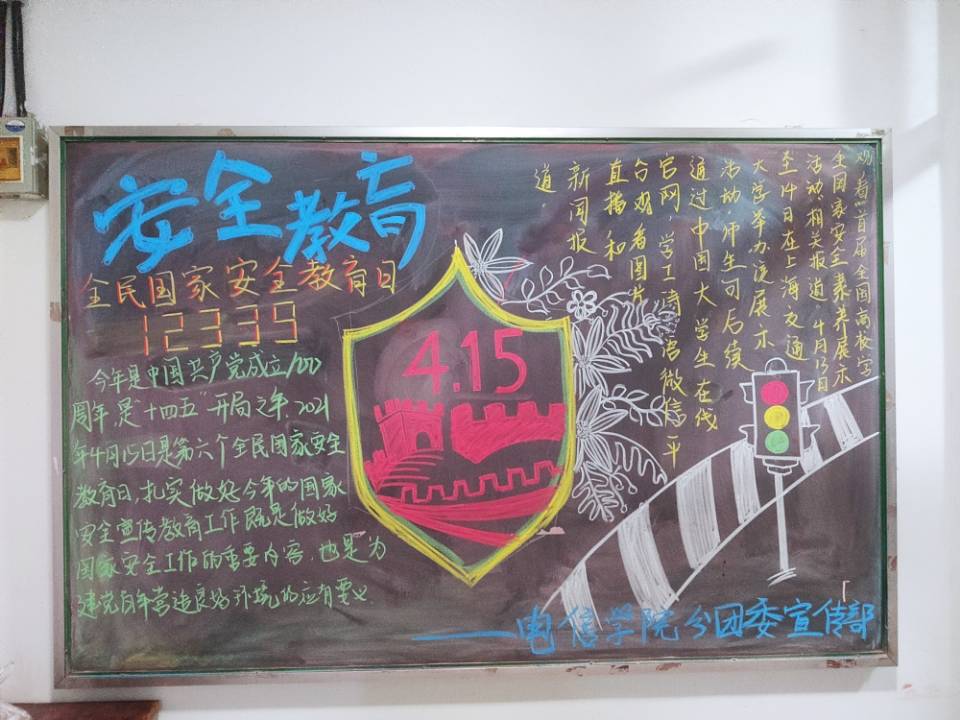 安全教育
全民国家安全教育日
12339
今年是中国共产党成立100
周年,是"十四五"开局之年,2021
年4月15日是第六个全民国家安全
教育日,扎实做好今年的国家
安全宣传教育工作既是做好
国家安全工作的重要内容,也是为
建党百年营造良好环境的应有要义
4.15
观看首届全国高校学
生国家安全素养展示
活动相关报道,4月13日
至14日在上海交通
大学举办决展示
活动,师生可后续
通过中国大学生在线
官网,学工 微信平
台观看图片
直播和
新闻报
道。
——电信学院分团委宣传部